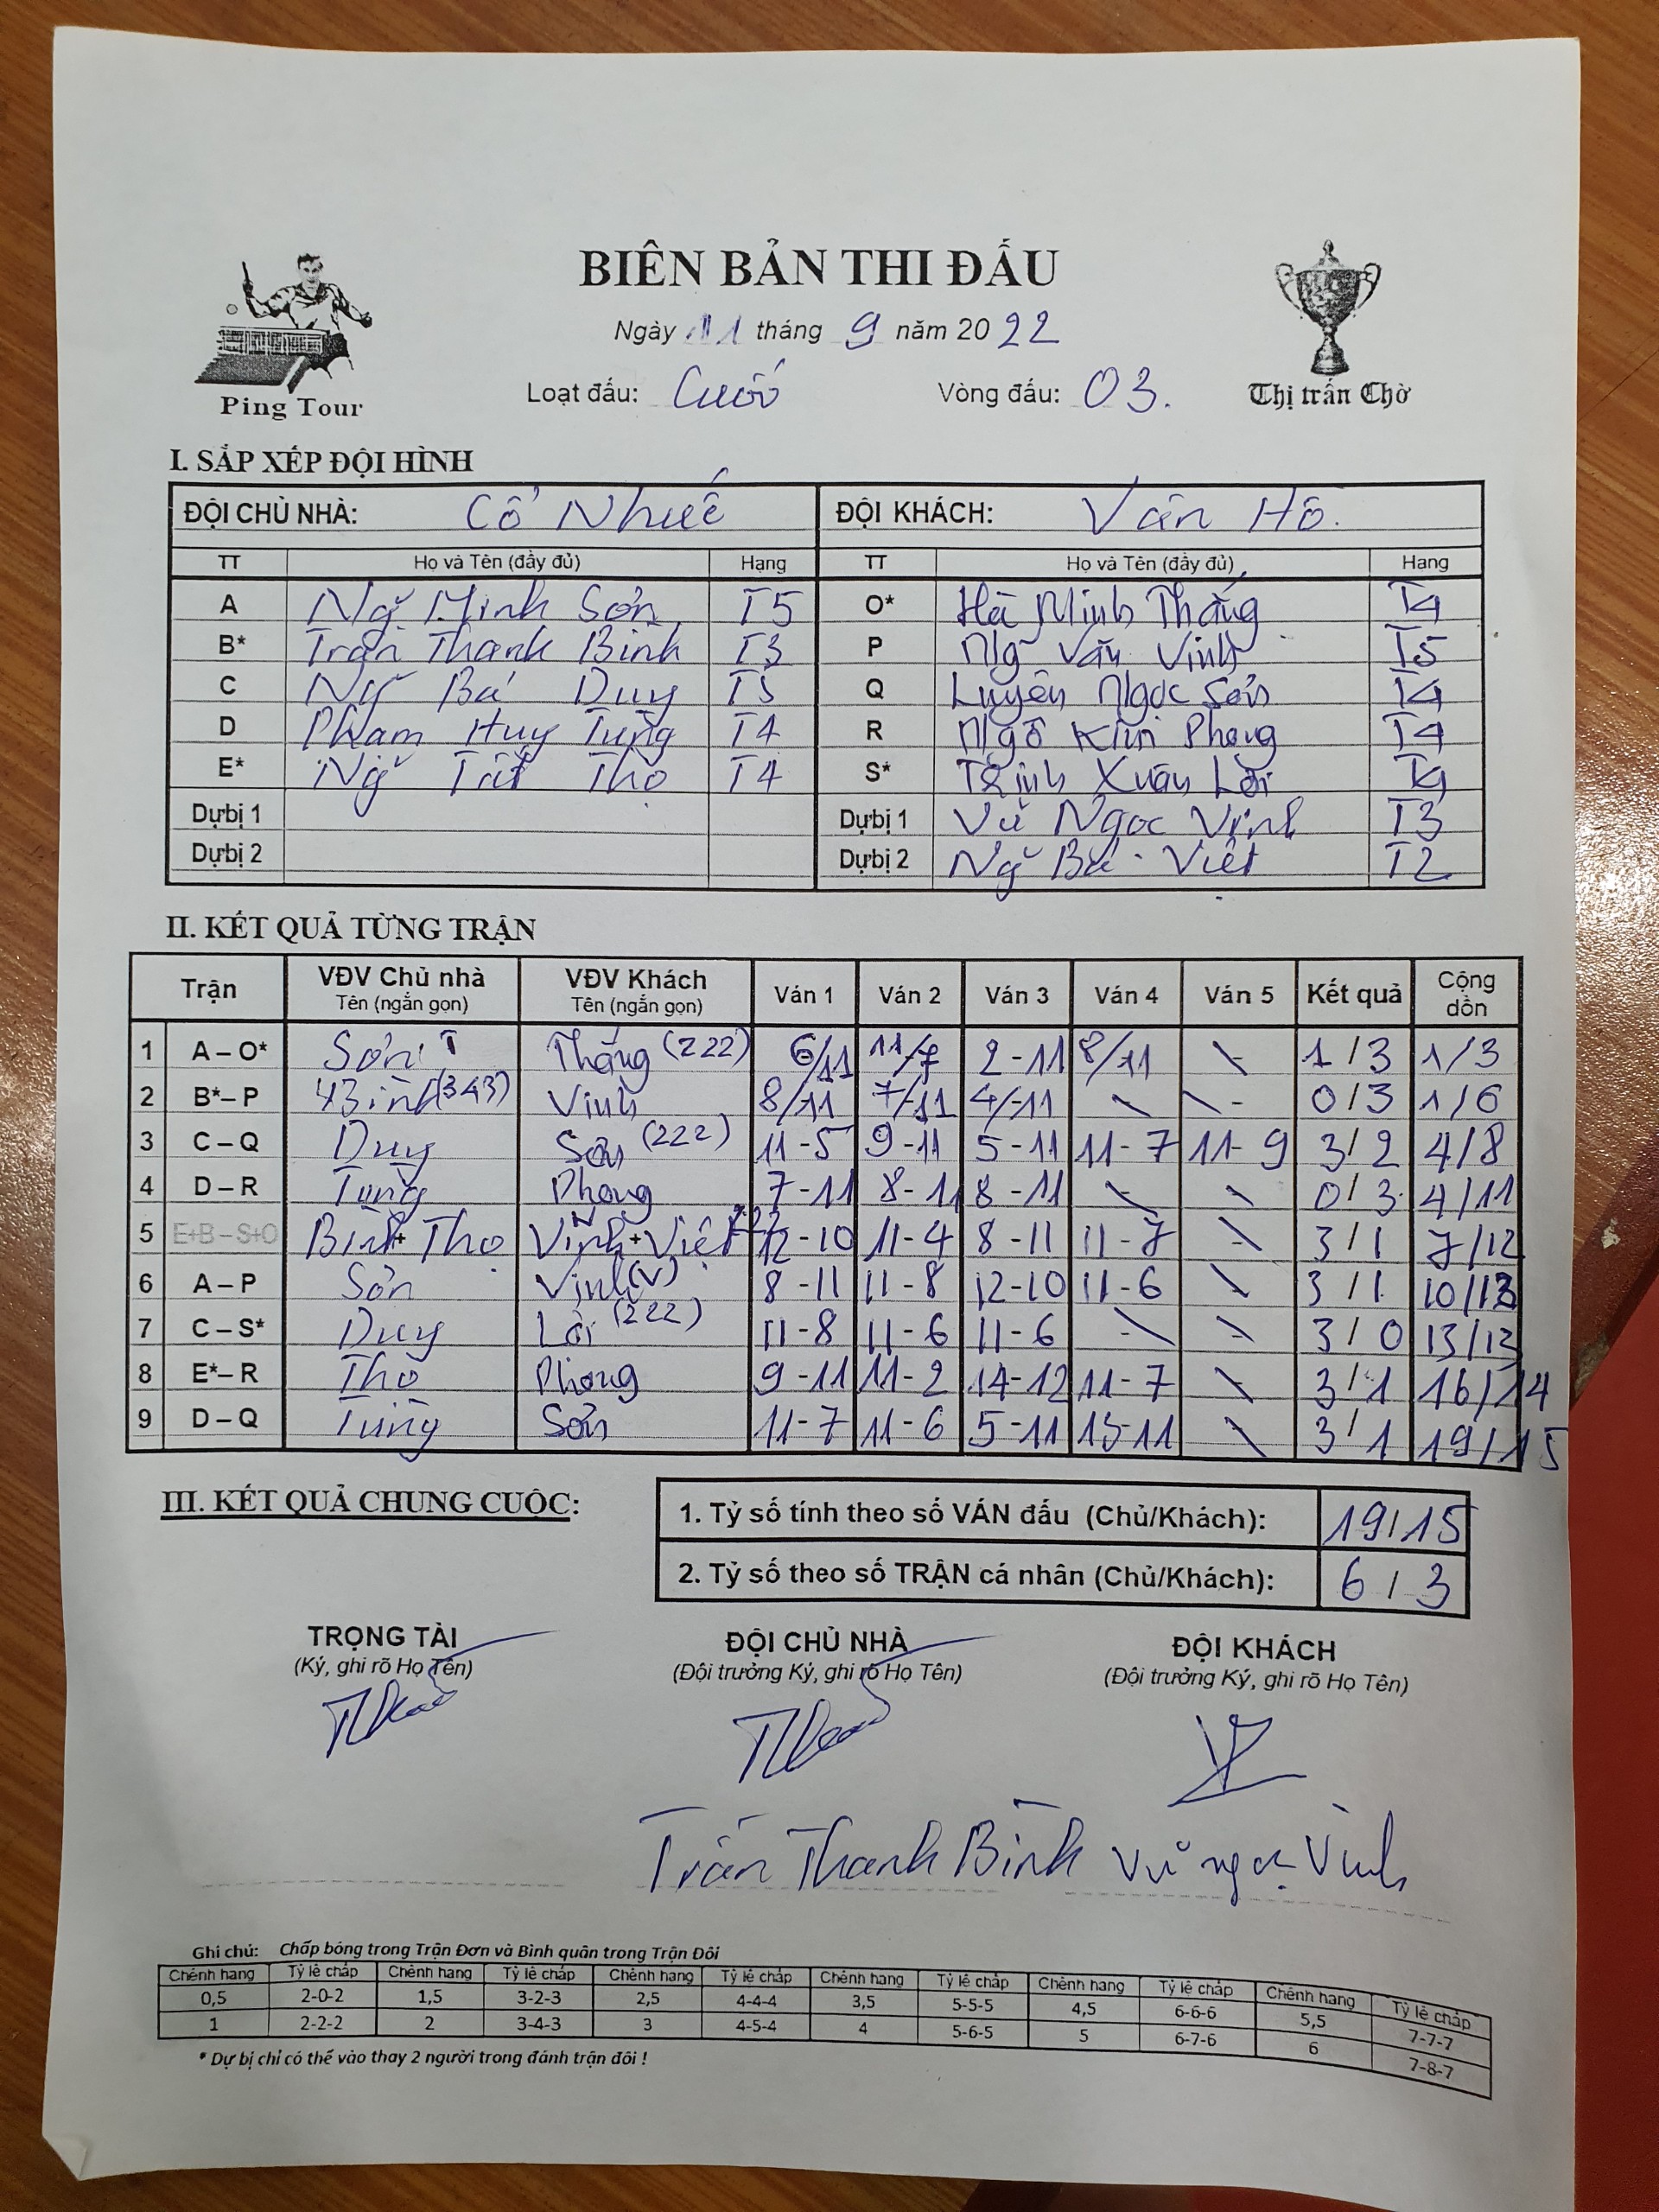 BIÊN BẢN THI ĐẤU
Ngày 11 tháng 9 năm 2022
Loạt đấu: Cuối Vòng đấu: 03.
Ping Tour
Thị trấn Chờ
I. SẮP XẾP ĐỘI HÌNH
ĐỘI CHỦ NHÀ: Cổ Nhuế ĐỘI KHÁCH: Vân Hồ.
TT Họ và Tên (đầy đủ) Hạng TT Họ và Tên (đầy đủ) Hang
A Ng~ Minh Sơn T5 O* Hà Minh Thắng T4
B* Trần Thanh Bình T3 P Ng~ Văn Vinh T5
C Ng~ Bá Duy T5 Q Luyện Ngọc Sơn T4
D Phạm Huy Tùng T4 R Ngô Kim Phong T4
E* Ng~ Tất Thọ T4 S* Trịnh Xuân Lợi T4
Dựbị 1 Dựbị 1 Vũ Ngọc Vịnh T3
Dựbị 2 Dựbị 2 Ng~ Bá Việt T2
II. KẾT QUẢ TỪNG TRẬN
Trận VĐV Chủ nhà VĐV Khách Ván 1 Ván 2 Ván 3 Ván 4 Ván 5 Kết quả Cộng dồn
Tên (ngắn gọn) Tên (ngắn gọn)
1 A – O* Sơn Thắng (222) 6/11 11/7 2-11 8/11 1/3 1/3
2 B*– P Bình (343) Vinh 8/11 7/11 4/-11 0/3 1/6
3 C – Q Duy Sơn (222) 11-5 9-11 5-11 11-7 11-9 3/2 4/8
4 D – R Tùng Phong 7-11 8-11 8-11 0/3 4/11
5 E+B – S+O Bình + Thọ Vĩnh + Việt 12-10 11-4 8-11 11-7 3/1 7/12
6 A – P Sơn Vinh (V) 8-11 11-8 12-10 11-6 3/1 10/13
7 C – S* Duy Lợi (222) 11-8 11-6 11-6 3/0 13/13
8 E*– R Thọ Phong 9-11 11-2 14-12 11-7 3/1 16/14
9 D – Q Tùng Sơn 11-7 11-6 5-11 13-11 3/1 19/15
III. KẾT QUẢ CHUNG CUỘC:
1. Tỷ số tính theo số VÁN đấu (Chủ/Khách): 19/15
2. Tỷ số theo số TRẬN cá nhân (Chủ/Khách): 6/3
TRỌNG TÀI ĐỘI CHỦ NHÀ ĐỘI KHÁCH
(Ký, ghi rõ Họ Tên) (Đội trưởng Ký, ghi rõ Họ Tên) (Đội trưởng Ký, ghi rõ Họ Tên)
Trần Thanh Bình Vũ Ngọc Vĩnh
Ghi chú: Chấp bóng trong Trận Đơn và Bình quân trong Trận Đôi
Chênh hang Tỷ lệ chấp Chênh hang Tỷ lệ chấp Chênh hang Tỷ lệ chấp Chênh hang Tỷ lệ chấp Chênh hang Tỷ lệ chấp Chênh hang Tỷ lệ chấp
0,5 2-0-2 1,5 3-2-3 2,5 4-4-4 3,5 5-5-5 4,5 6-6-6 5,5 7-7-7
1 2-2-2 2 3-4-3 3 4-5-4 4 5-6-5 5 6-7-6 6 7-8-7
* Dự bị chỉ có thể vào thay 2 người trong đánh trận đôi !